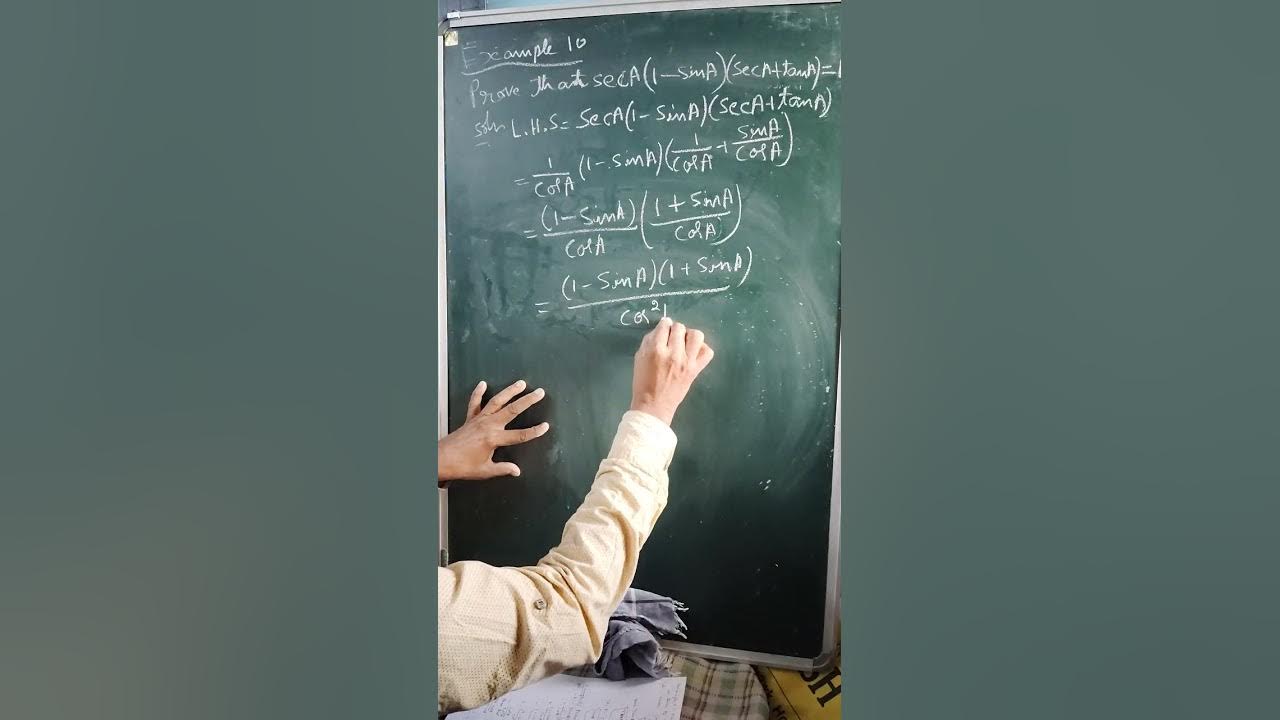 Example 10
Prove that secA(1-sinA)(secA+tanA)=1
soln L.H.S=SecA(1-SinA)(SecA+tanA)
= 1/cosA (1-sinA)(1/cosA + sinA/cosA)
= (1-SinA)/cosA (1+SinA/cosA)
= (1-SinA)(1+SinA)/cos²
SH